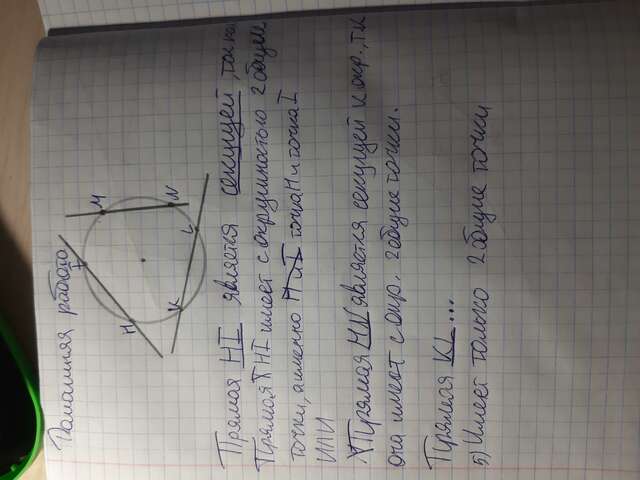 Домашняя работа
M
N
I
L
H
K
Прямая HI является секущей, так как
Прямая HI имеет с окружностью 2 общие
точки, а именно точка H и точка I
ИЛИ
Прямая MN является секущей к окр., т.к
она имеет с окр. 2 общие точки.
Прямая KL...
5) Имеет только 2 общие точки